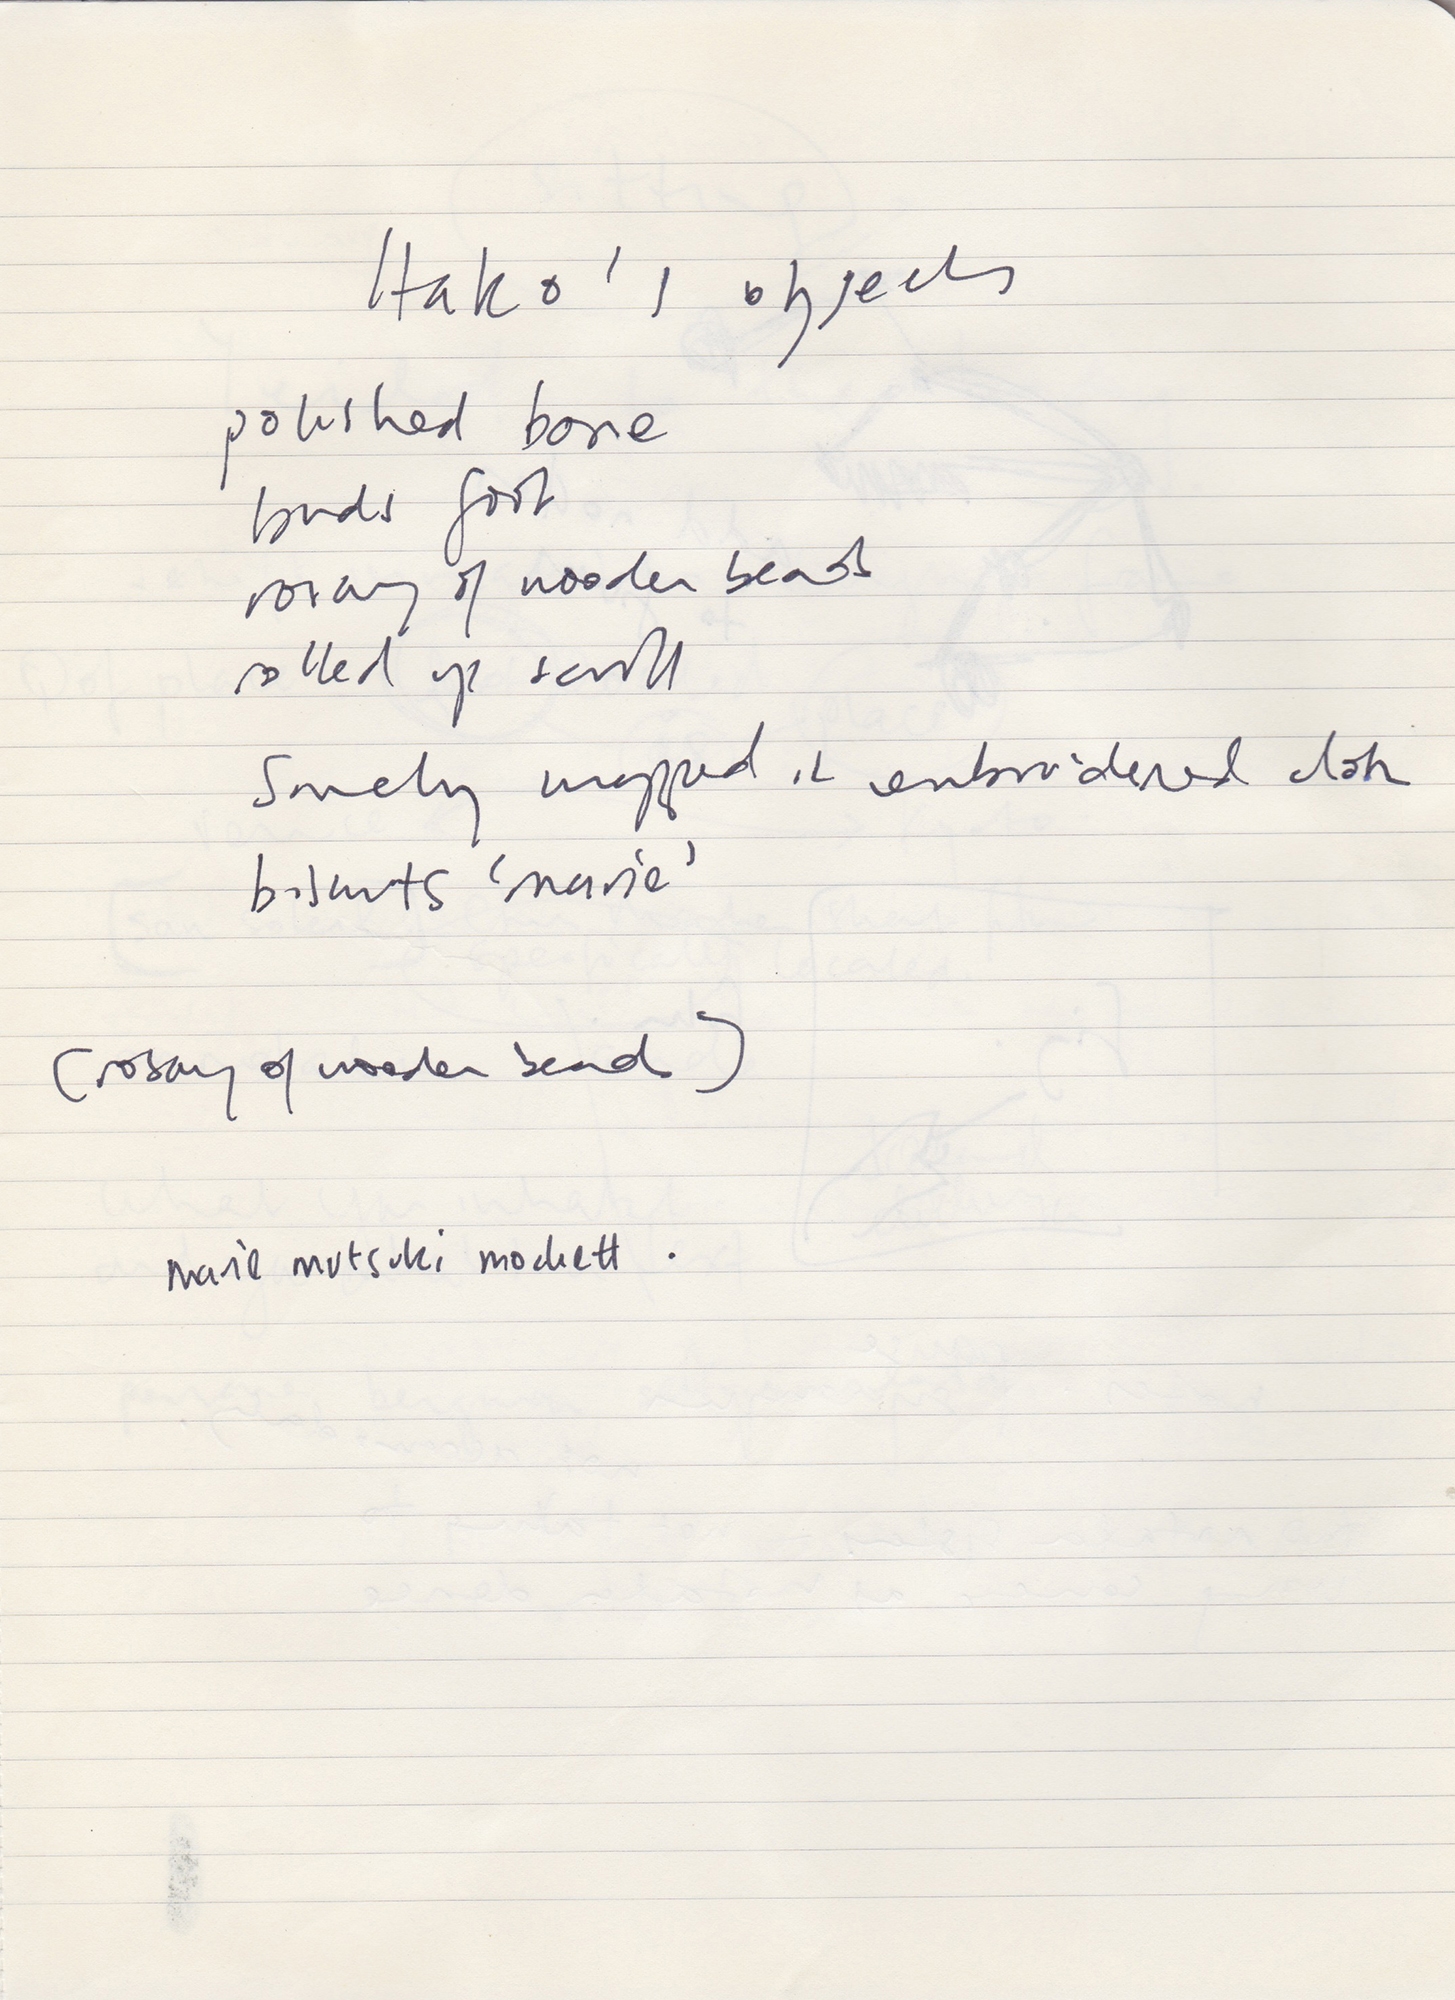 Itako's objects
polished bone
birds foot
rosary of wooden beads
rolled up scroll
wrapped in embroidered cloth
biscuits 'marie'
(rosary of wooden beads)
marie mutsuki mockett.